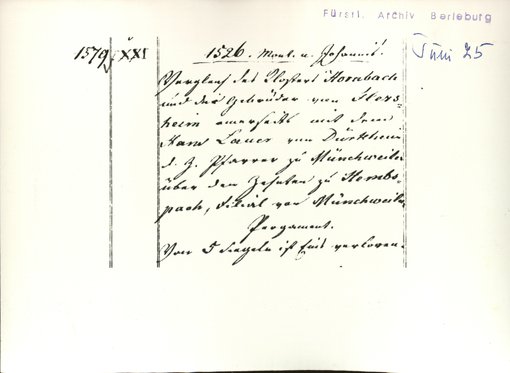 Fürstl. Archiv Berleburg
1579 XXI 1526. Mont. n. Johannis. Juni 25
Vergleich des Klosters Hornbach
und der Gebrüder von Flers-
heim einerseits mit dem
Hans Lauer von Dürkheim
d. Z. Pfarrer zu Münchweiler
über den Zehnten zu Hembs-
pach, Filial von Münchweiler
Pergament.
Von 5 Siegeln ist Eins verloren.